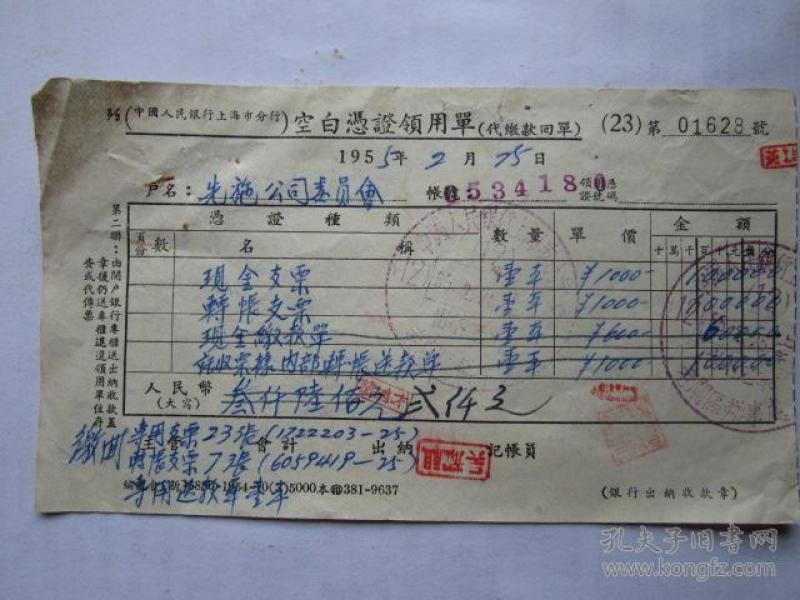 (中國人民銀行上海市分行) 空白憑證領用單(代繳款回單) (23)第 01628 號
1955年2月25日
戶名：先施公司委員會 帳號 53418 領用憑證號碼
憑證種類 金額
頁份數 名稱 數量 單價 十萬千百十元角分
現金支票 壹本 ¥1000- 100000
轉帳支票 壹本 ¥1000- 100000
現金繳款單 壹本 ¥600- 60000
內部轉帳送款單 壹本 ¥1000 100000
人民幣(大寫) 叁仟陸佰元 弍仟元
主管 會計 出納 記帳員
吳耀祖
繳回 專用支票23張(1722203-25)
轉帳支票7張(6059419-25)
專用送款單壹本
5000本 381-9637
(銀行出納收款章)
第二聯：由開戶銀行專櫃送出納收款蓋
章後仍送專櫃退還領用單位存
查或代傳票
孔夫子旧书网
www.kongfz.com